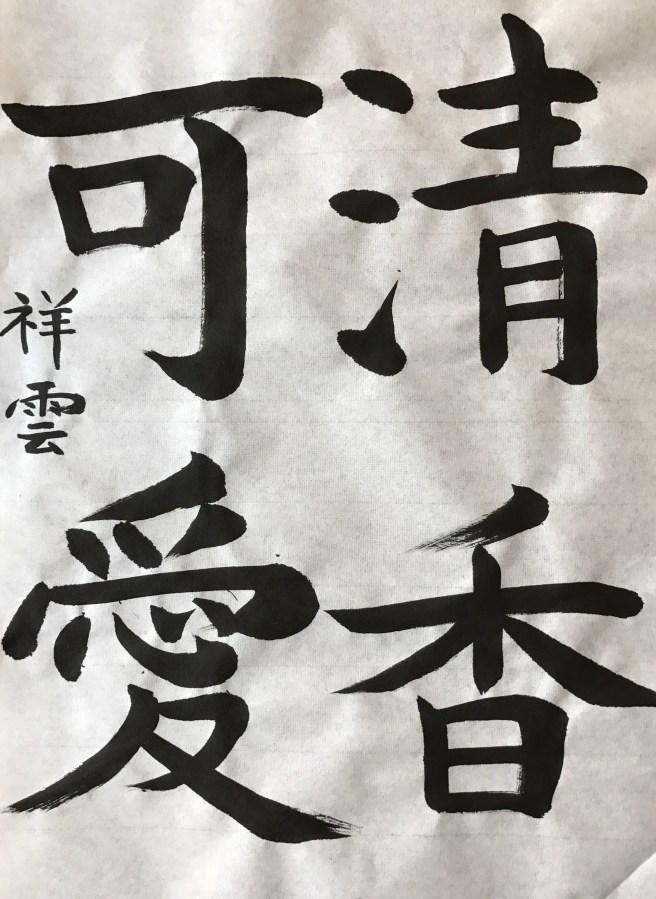 清香
可愛
祥雲